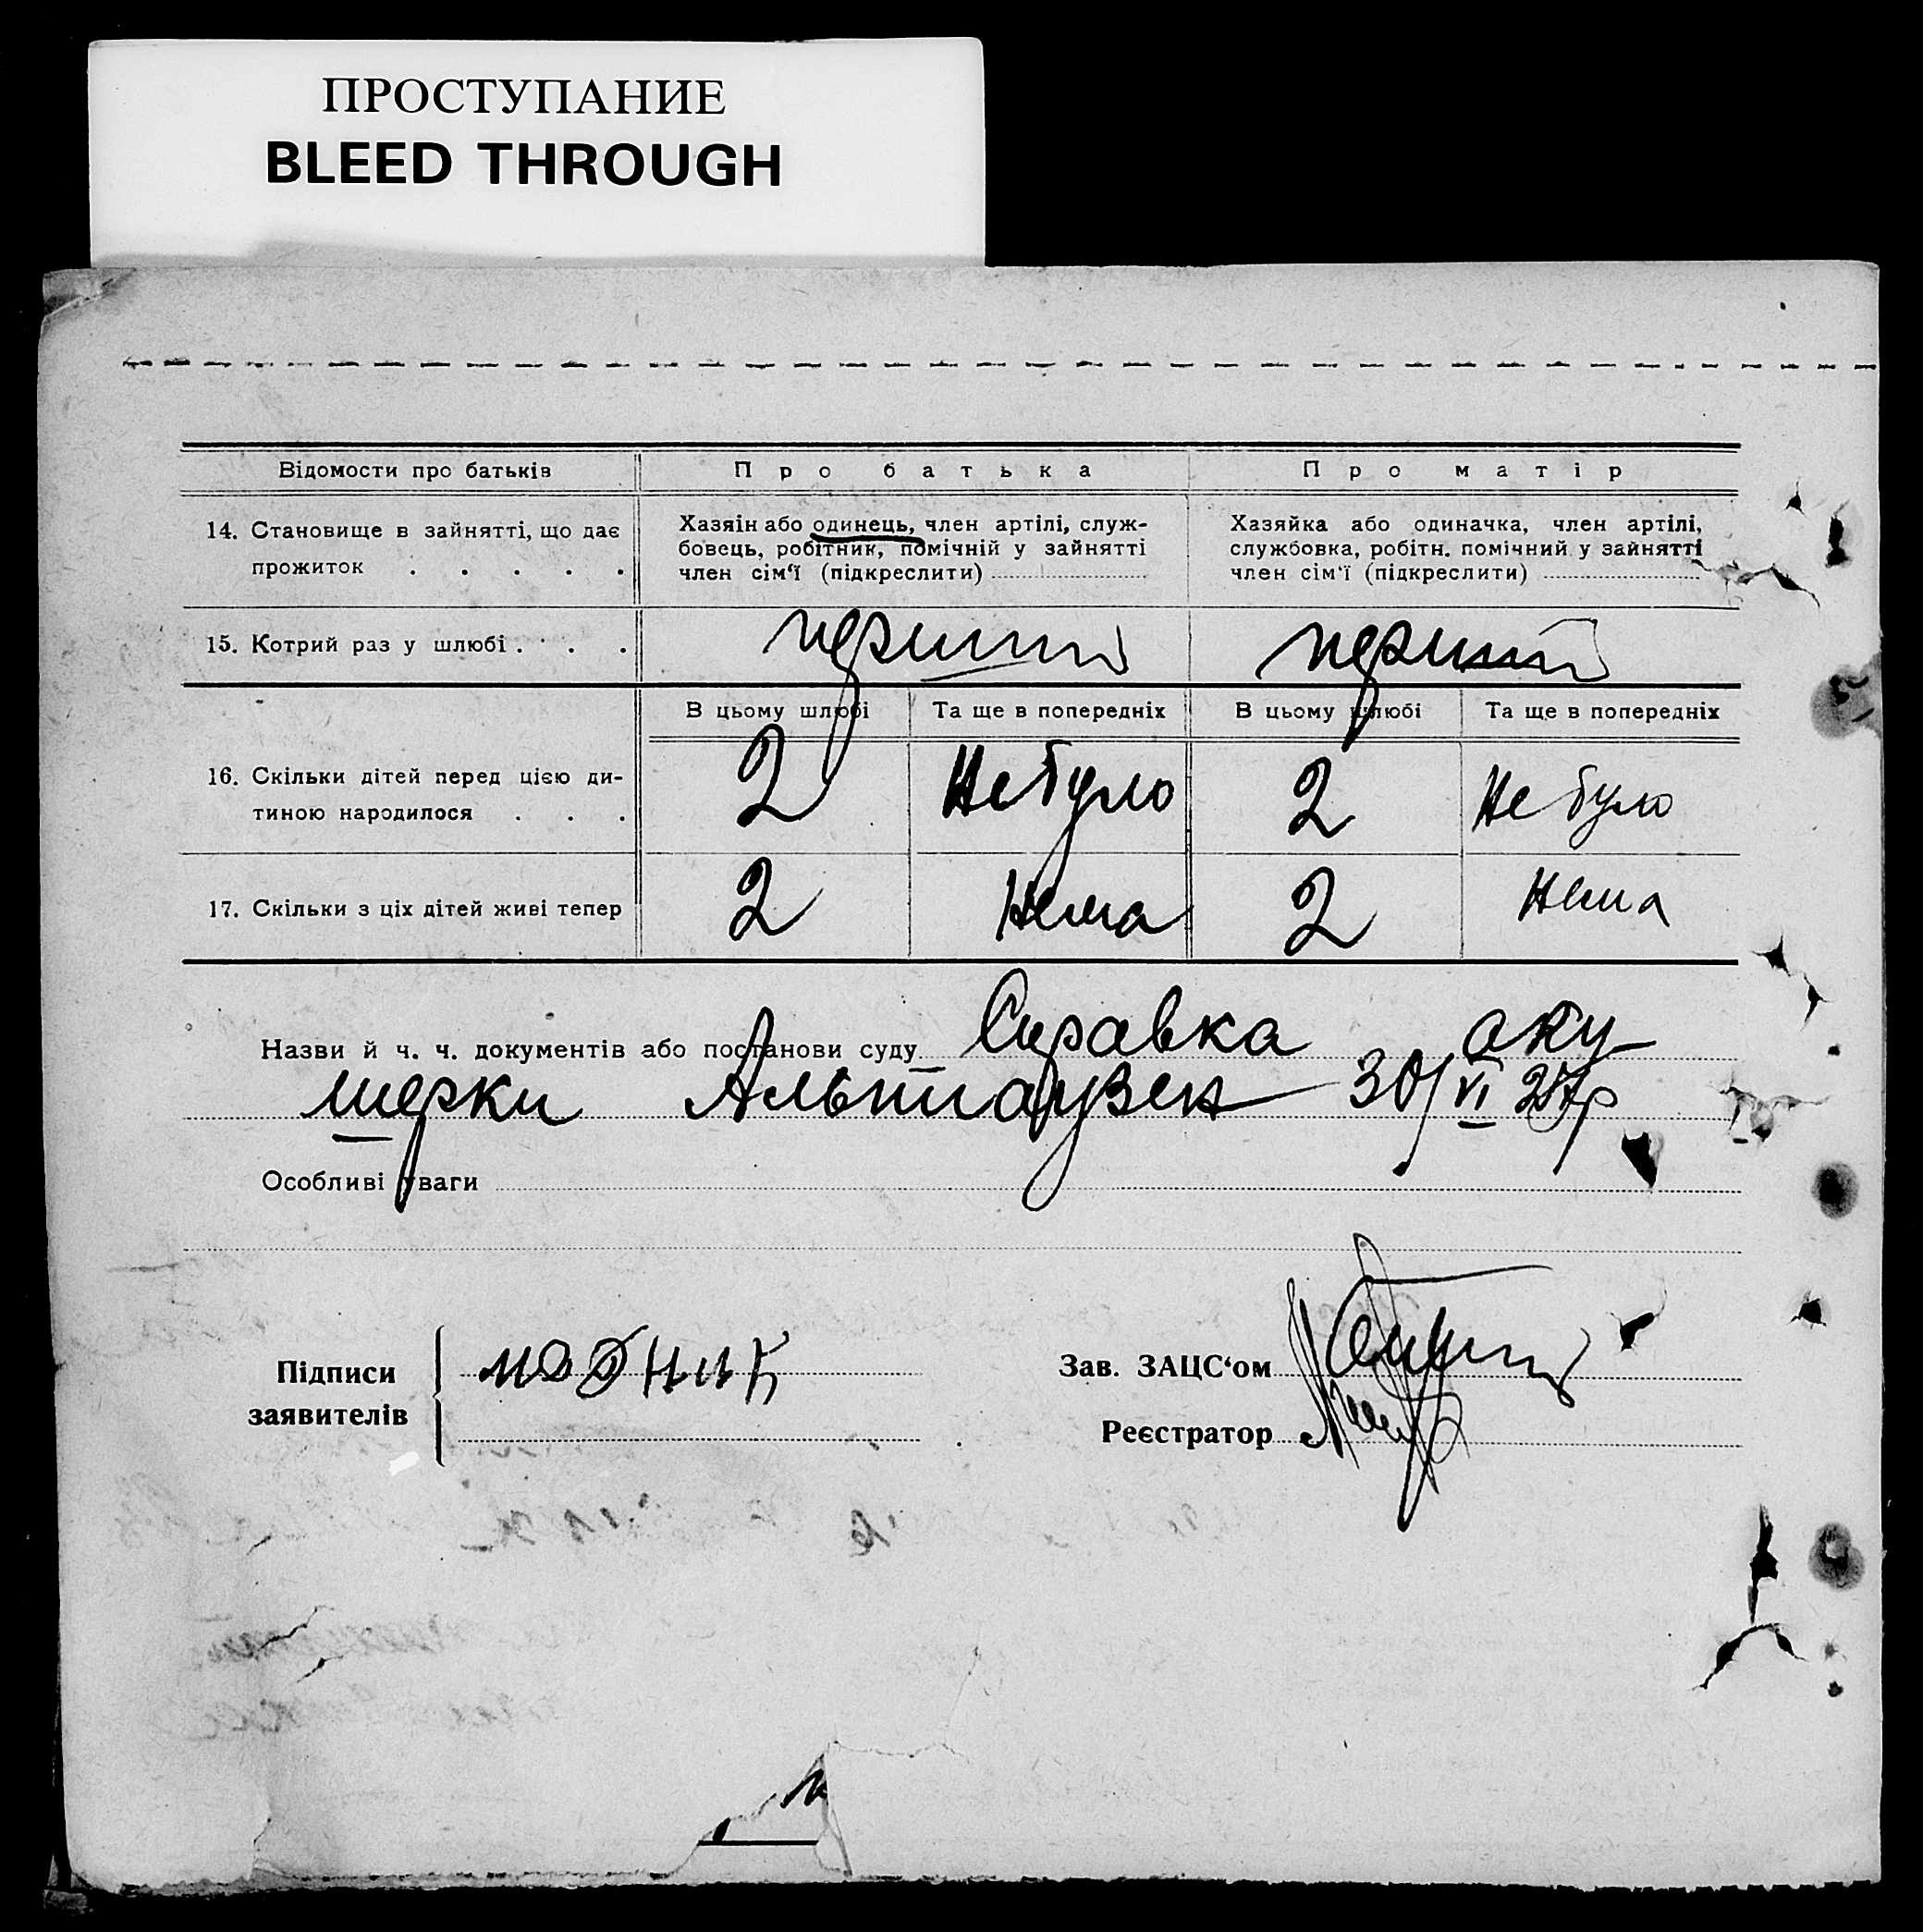 ПРОСТУПАНИЕ
BLEED THROUGH
Відомости про батьків
Про батька
Про матір
14. Становище в зайнятті, що дає
прожиток . . . . .
Хазяін або одинець, член артілі, служ-
бовець, робітник, помічній у зайнятті
член сім‘ї (підкреслити)
Хазяйка або одиначка, член артілі,
службовка, робітн. помічний у зайнятті
член сім‘ї (підкреслити)
15. Котрий раз у шлюбі . . . .
перший
перший
В цьому шлюбі
Та ще в попередніх
В цьому шлюбі
Та ще в попередніх
16. Скільки дітей перед цією ди-
тиною народилося . . .
2
Не було
2
Не було
17. Скільки з ціх дітей живі тепер
2
Нема
2
Нема
Назви й ч. ч. документів або постанови суду Справка аку
шерки 30/VI 27р
Особливі уваги
Підписи
заявителів
Зав. ЗАЦС‘ом
Реєстратор